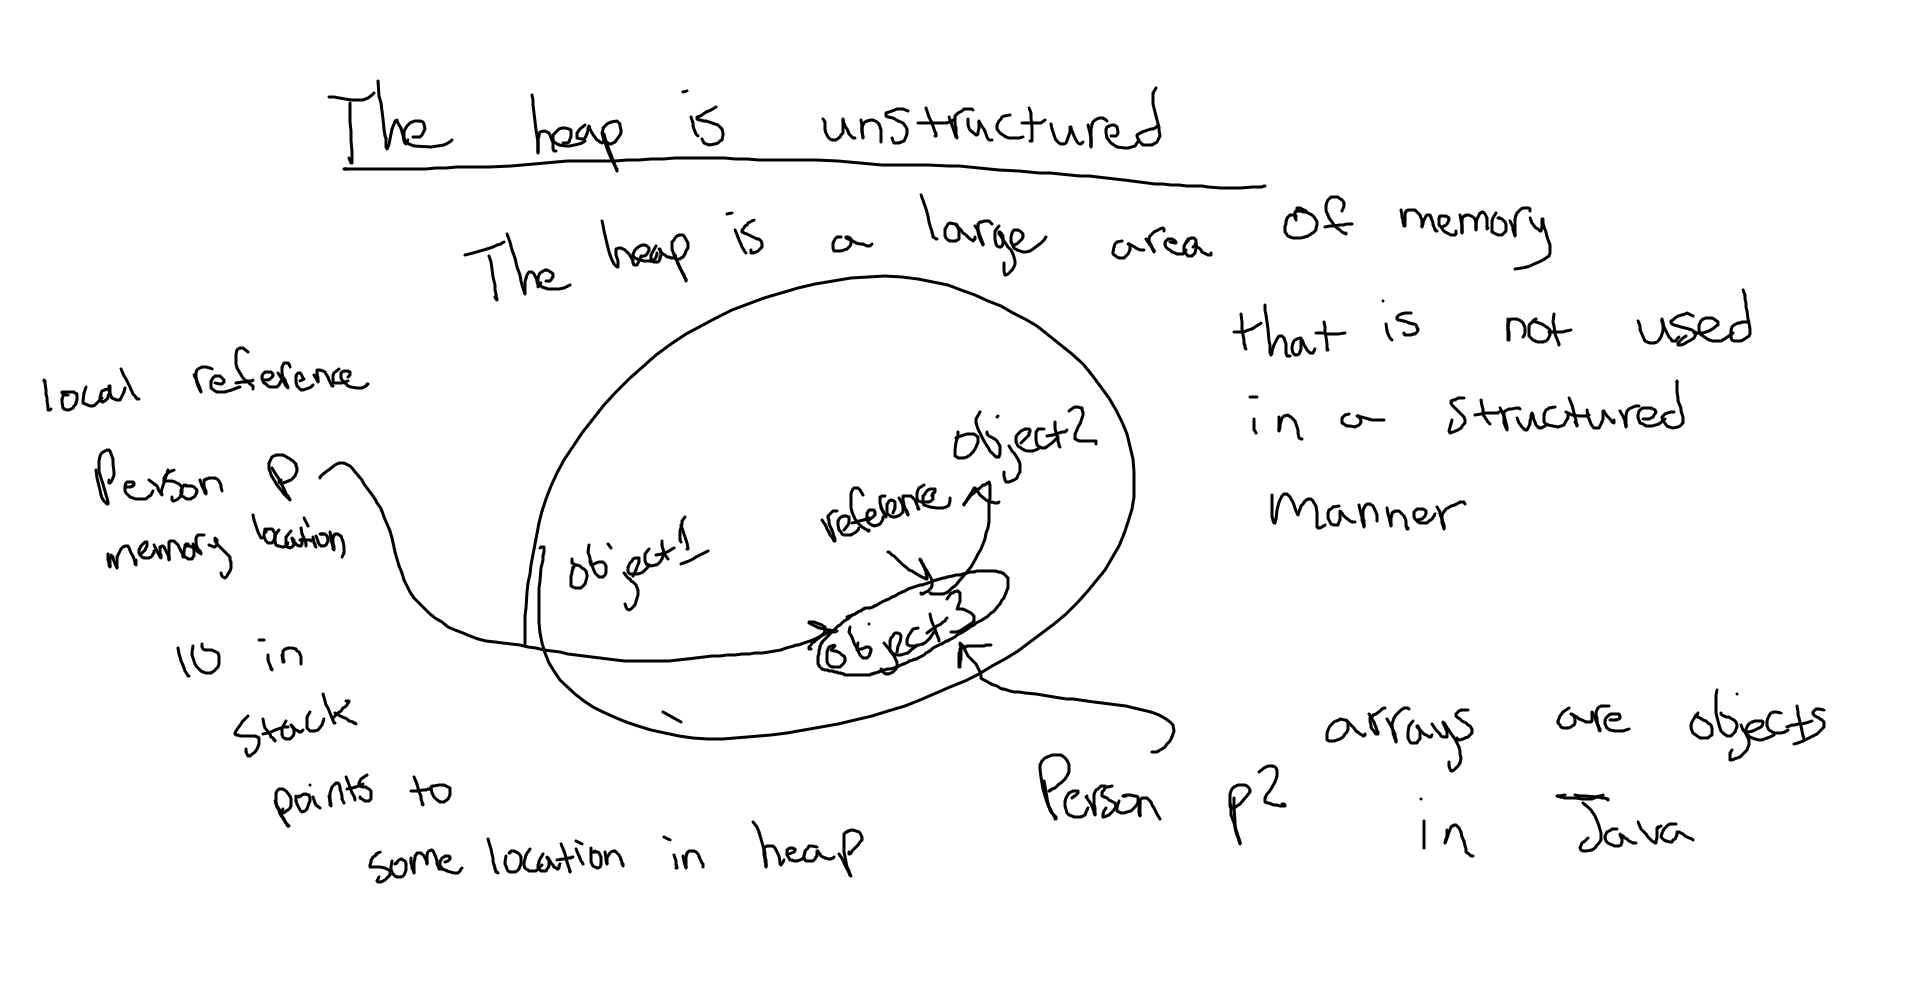 The heap is unstructured
The heap is a large area of memory
that is not used
in a structured
manner
local reference
Person p
memory location
10 in
stack
points to
some location in heap
object1
reference
object2
object3
Person p2
arrays are objects
in Java